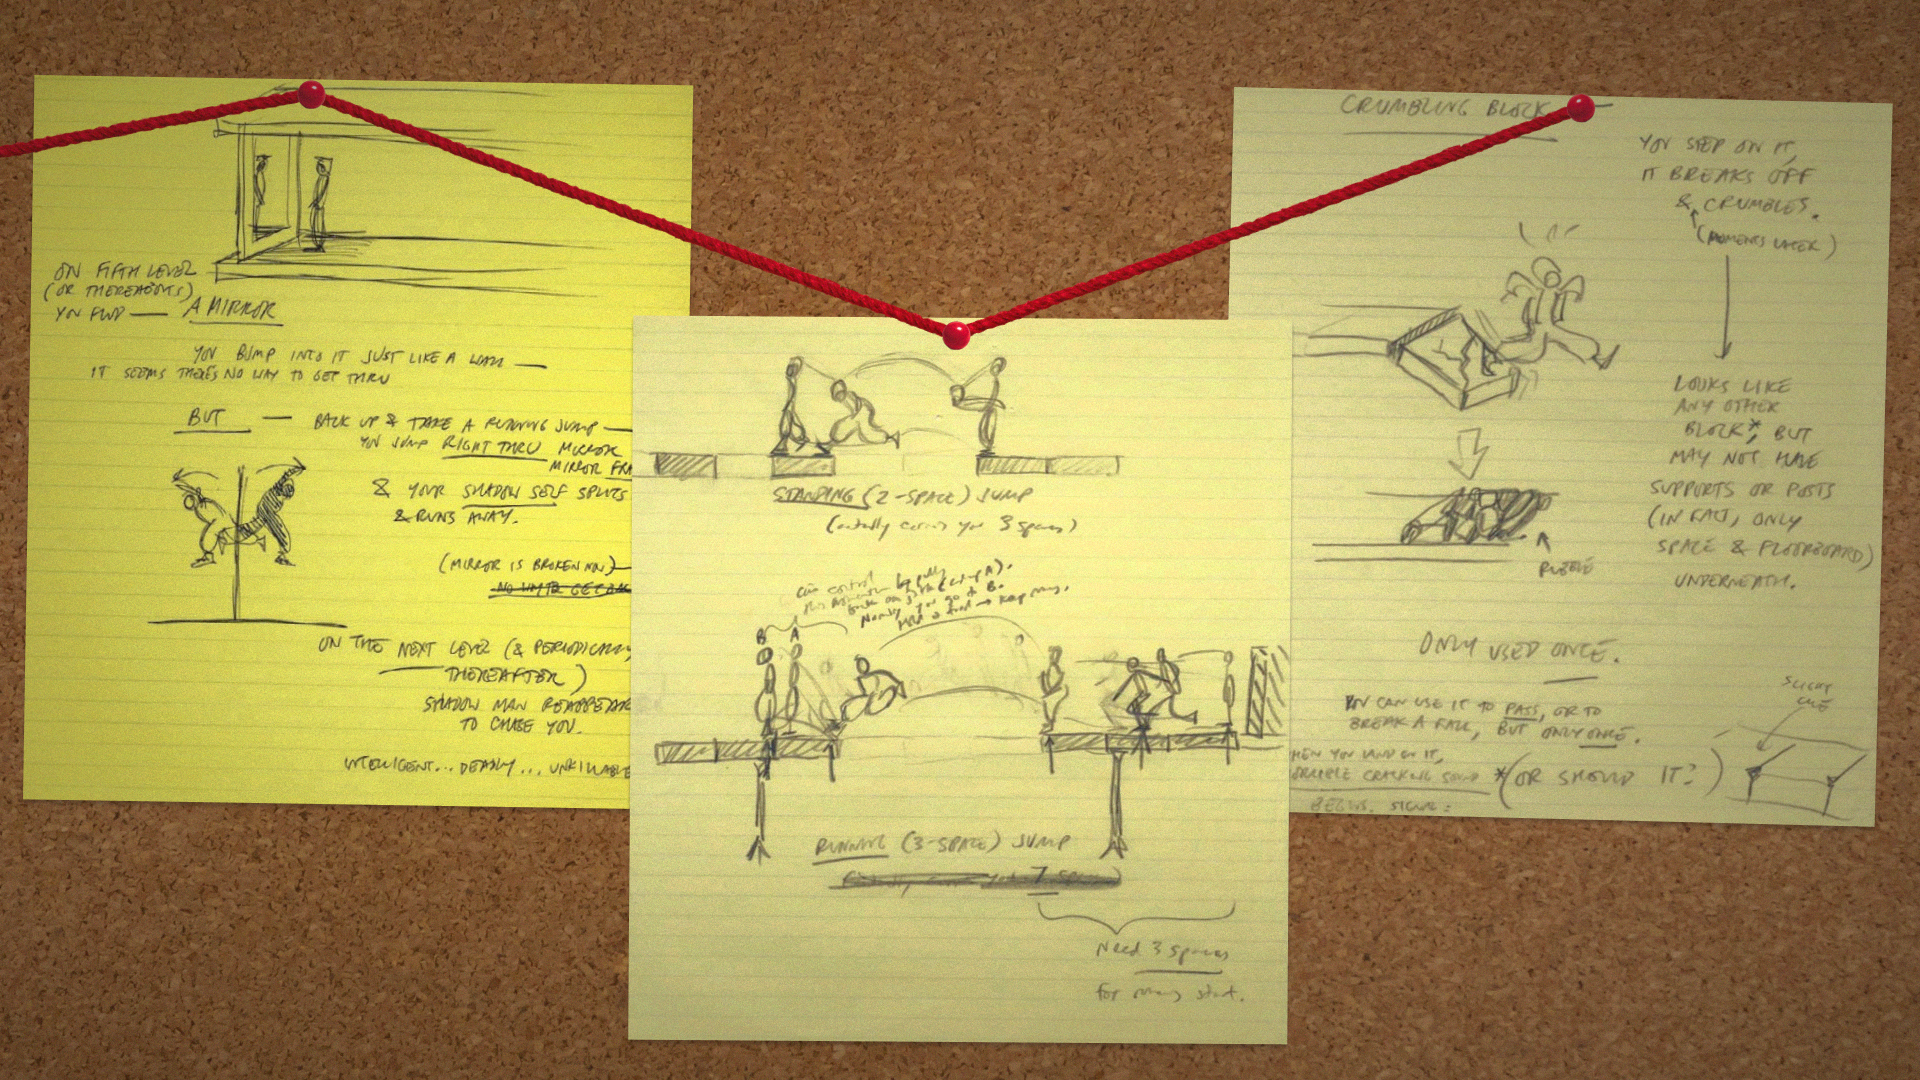 ON FIFTH LEVEL
(OR THEREABOUTS)
YOU FIND — A MIRROR
YOU BUMP INTO IT JUST LIKE A WALL —
IT SEEMS THERE'S NO WAY TO GET THRU
BUT — BACK UP & TAKE A RUNNING JUMP —
YOU JUMP RIGHT THRU MIRROR
MIRROR FRA
& YOUR SHADOW SELF SPLITS
& RUNS AWAY.
(MIRROR IS BROKEN NOW)
ON THE NEXT LEVEL (& PERIODICALLY
THEREAFTER)
SHADOW MAN REAPPEAR
TO CHASE YOU.
INTELLIGENT... DEADLY... UNKILLABLE
STANDING (2-SPACE) JUMP
(actually carries you 3 spaces)
can control
this momentum by pulling
back on stick (setup A).
Normally you go to B.
B A
RUNNING (3-SPACE) JUMP
Need 3 spaces
for running start.
CRUMBLING BLOCK
YOU STEP ON IT,
IT BREAKS OFF
& CRUMBLES.
(MOMENTS LATER)
LOOKS LIKE
ANY OTHER
BLOCK*, BUT
MAY NOT HAVE
SUPPORTS OR POSTS
(IN FACT, ONLY
SPACE & FLOORBOARD)
UNDERNEATH.
RUBBLE
ONLY USED ONCE.
YOU CAN USE IT TO PASS, OR TO
BREAK A FALL, BUT ONLY ONCE.
HEN YOU LAND ON IT,
CRACKING SOUND
BEGINS.
*(OR SHOULD IT?)